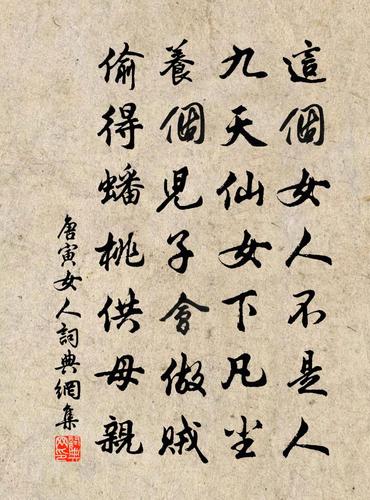 這個女人不是人
九天仙女下凡尘
養個兒子會做賊
偷得蟠桃供母親
唐寅女人詞典網集